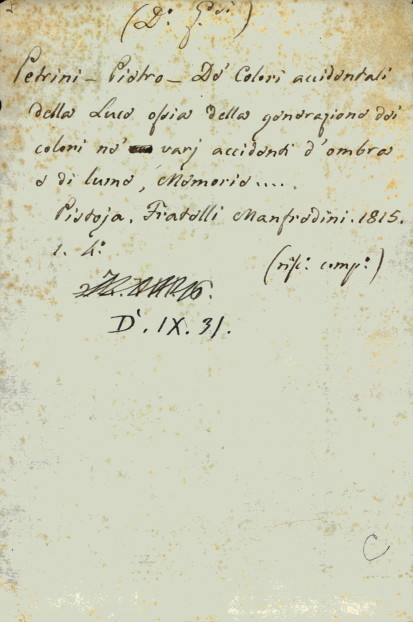 Petrini - Pietro - De' Colori accidentali
della Luce ossia della generazione dei
colori ne' varj accidenti d'ombra
e di lume, Memoria....
Pistoja. Fratelli Manfredini. 1815.
1. 4.°
D'. IX. 31.
C